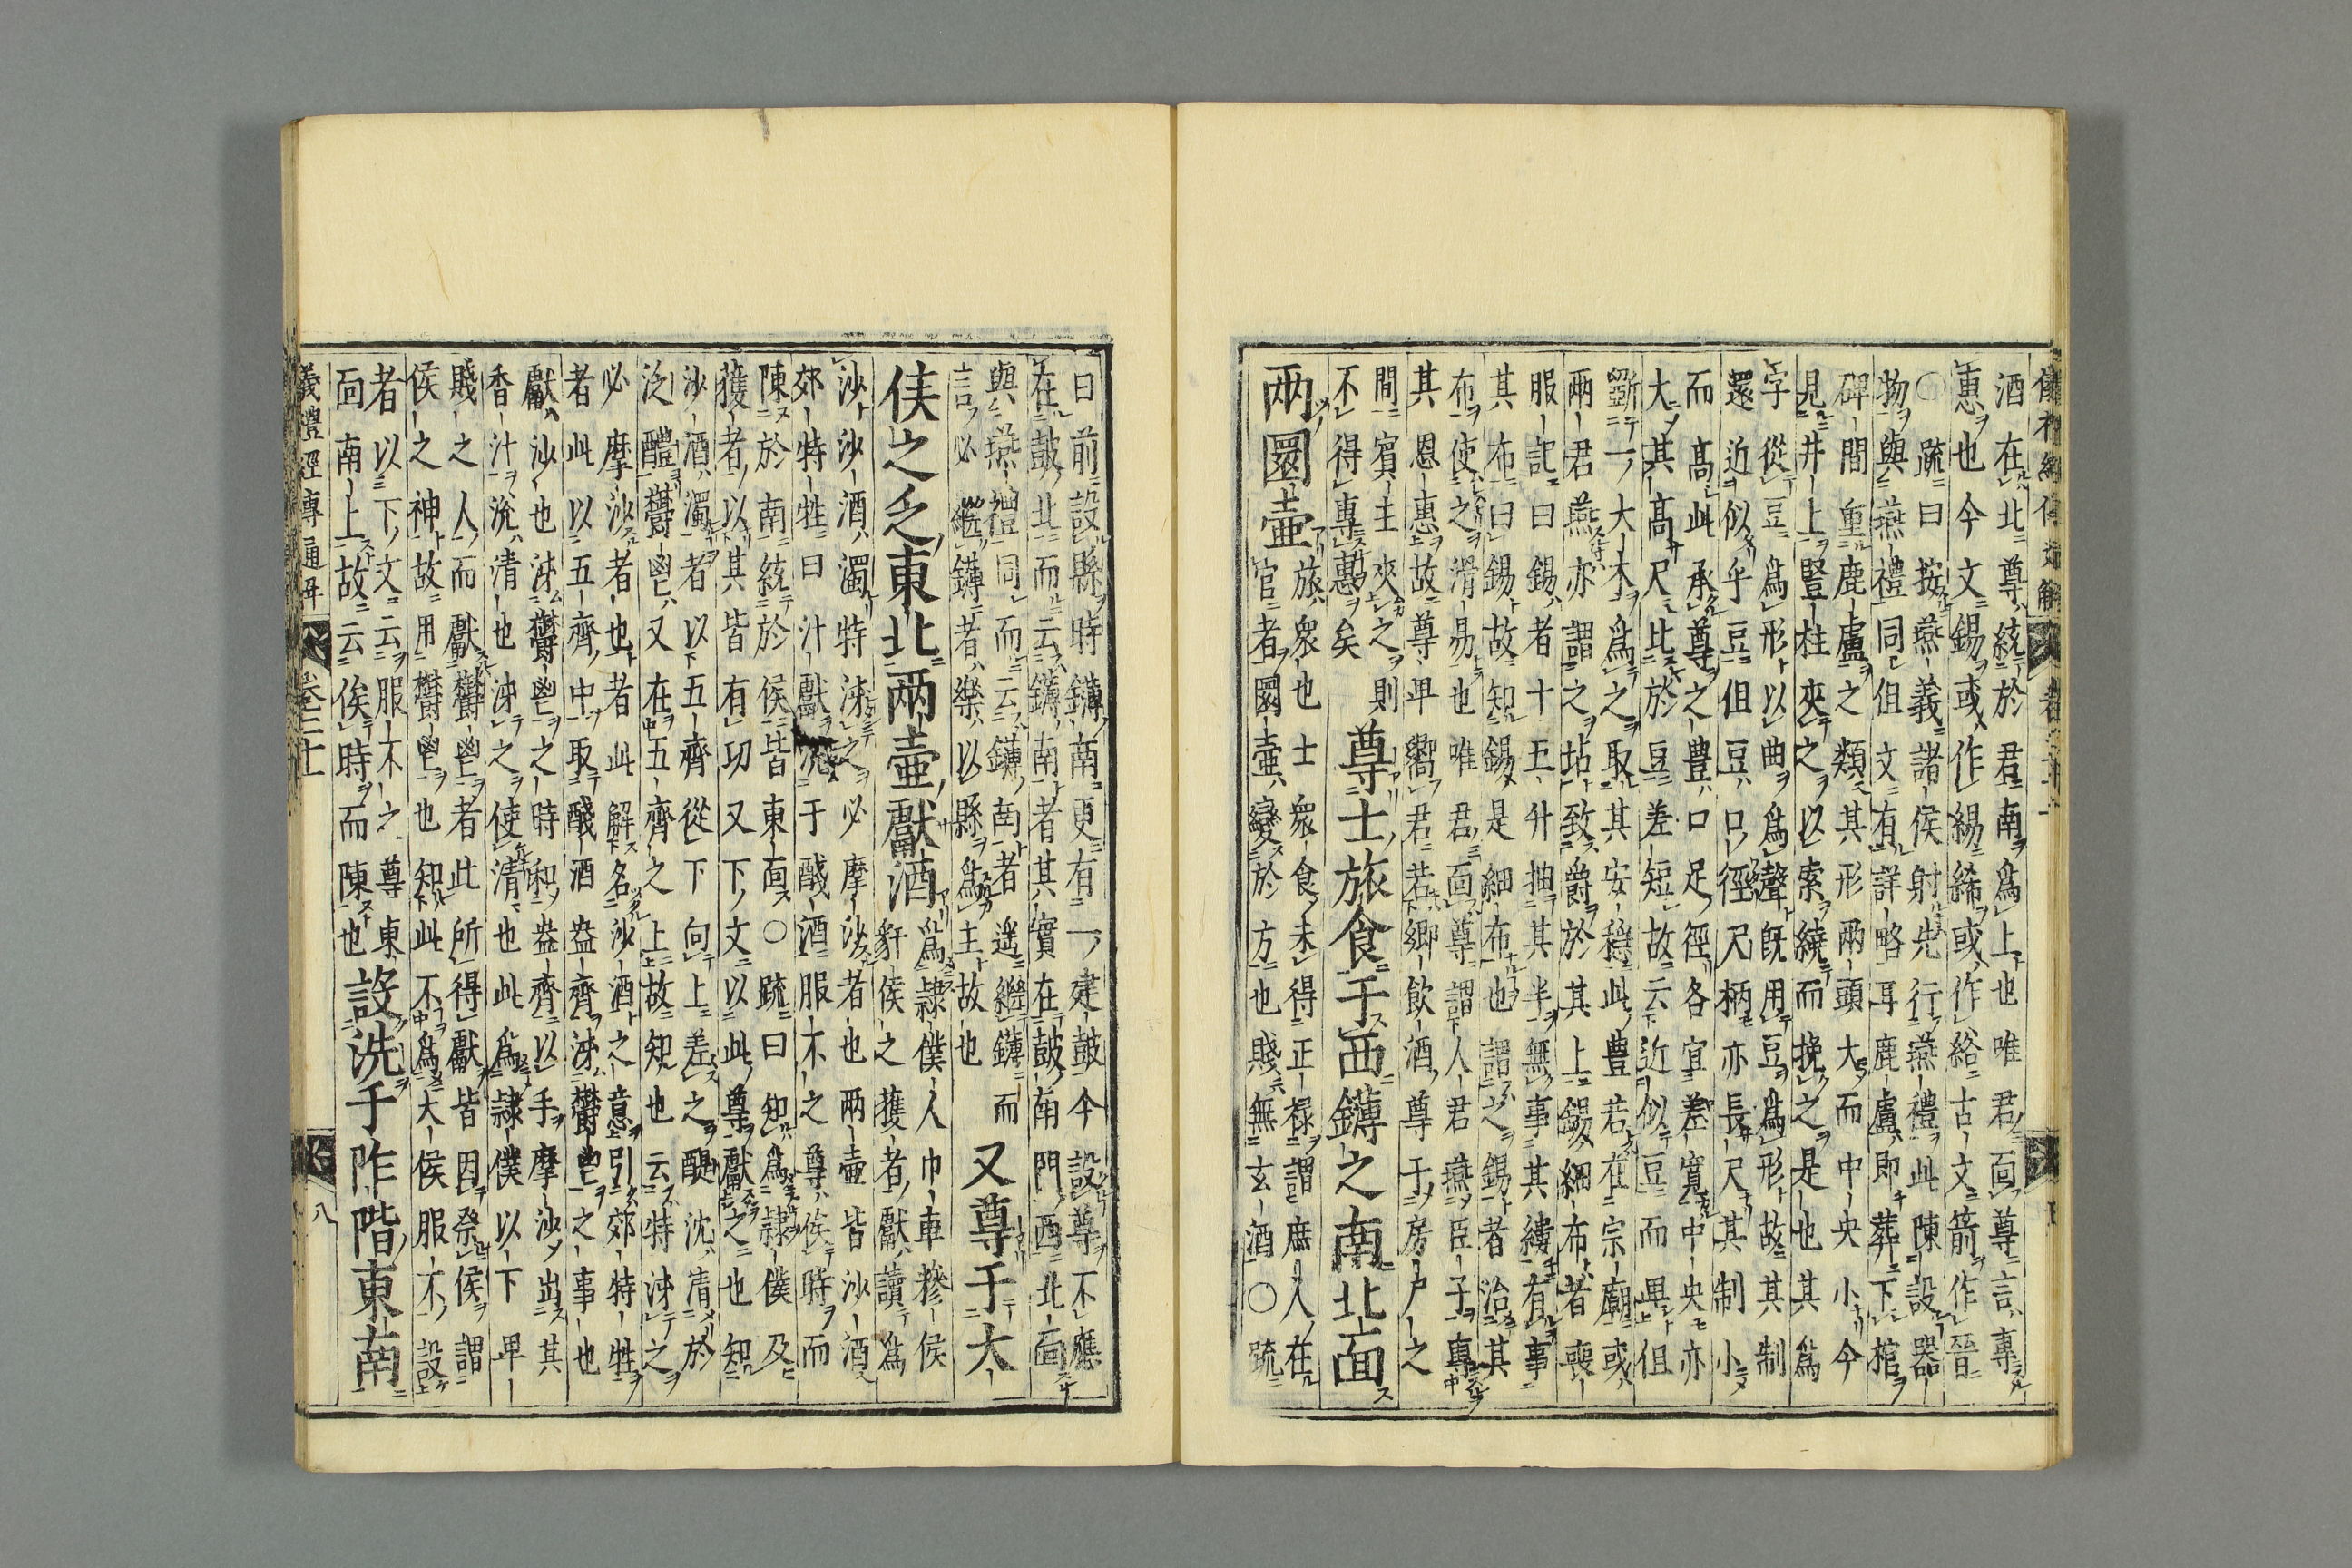 酒在北尊統於君南爲上也唯君面尊言專
惠也今文錫或作緆絺或作綌古文箭作晉
○疏曰按燕義諸侯射先行燕禮此陳設器
物與燕禮同但文有詳略耳鹿盧即葬下棺
碑間重鹿盧之類其形兩頭大而中央小今
見井上豎柱夾之以索繞而挽之是也其爲
字從豆爲形以曲爲聲既用豆爲形故其制
還近似乎豆但豆口徑尺柄亦長尺其制小
而高此承尊之豊口足徑各宜差寬中央亦
大其高尺比於豆差短故云近似豆而卑但
斵一大木爲之取其安穩此豊若在宗廟或
兩君燕亦謂之坫致爵於其上錫細布者喪
服記曰錫者十五升抽其半無事其縷有事
其布曰錫故知錫是細布也謂之錫者治其
布使之滑易也唯君面尊謂人君燕臣子專
其恩惠故尊卑嚮君若鄉飲酒尊于房戶之
間賓主夾之則
不得專惠矣
尊士旅食于西鑮之南北面
兩圜壺
旅衆也士衆食未得正祿謂庶人在
官者圜壺變於方也賤無玄酒○疏
曰前設縣時鑮南更有一建鼓今設尊不應
在鼓北而云鑮南者其實在鼓南門西北面
與燕禮同而云鑮南者遥繼鑮而
言必繼鑮者樂以縣爲主故也
又尊于大
侯之乏東北兩壺獻酒
爲隷僕人巾車糝侯
豻侯之獲者獻讀爲
沙沙酒濁特泲之必摩沙者也兩壺皆沙酒
郊特牲曰汁獻涗于醆酒服不之尊俟時而
陳於南統於侯皆東面○疏曰知爲隷僕及
獲者以其皆有功又下文以此尊獻之也知
沙酒濁者以五齊從下向上差之醍沈清於
泛醴鬱鬯又在五齊之上故知也云特泲之
必摩沙者也者此解名沙酒之意引郊特牲
者此以五齊中取醆酒盎齊泲鬱鬯之事也
獻沙也泲鬱鬯之時和盎齊以手摩沙出其
香汁涗清也泲之使清也此爲隷僕以下卑
賤之人而獻鬱鬯者此所得獻皆因祭侯謂
侯之神故用鬱鬯也知此不爲大侯服不設
者以下文云服不之尊東
面南上故云俟時而陳也
設洗于阼階東南
義禮經傳通解
卷二十一
八